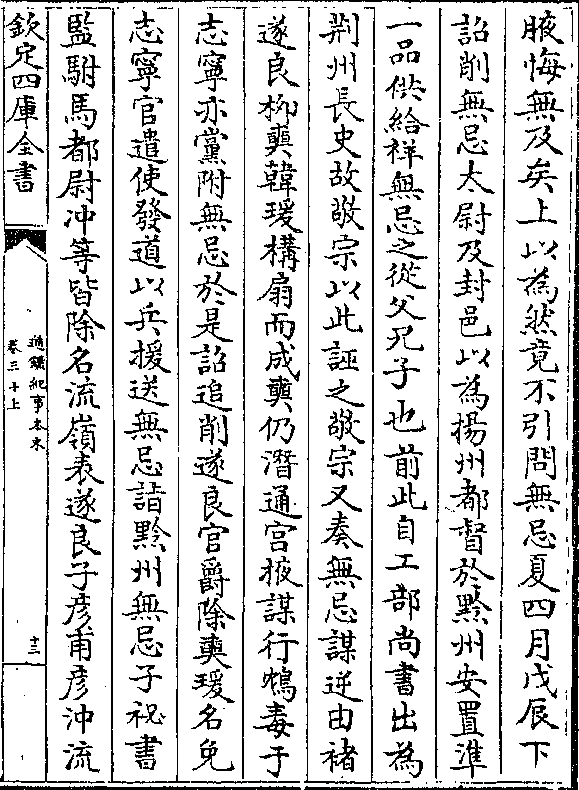 腋悔無及矣上以為然竟不引問無忌夏四月戊辰下
詔削無忌太尉及封邑以為揚州都督於黔州安置準
一品供給祥無忌之從父兄子也前此自工部尚書出為
荆州長史故敬宗以此誣之敬宗又奏無忌謀逆由褚
遂良柳奭韓瑗構扇而成奭仍潛通宫掖謀行鴆毒于
志寧亦黨附無忌於是詔追削遂良官爵除奭瑗名免
志寧官遣使發道以兵援送無忌詣黔州無忌子祕書
監駙馬都尉冲等皆除名流嶺表遂良子彦甫彦沖流
欽定四庫全書
通鑑紀事本末
卷三十上
十三